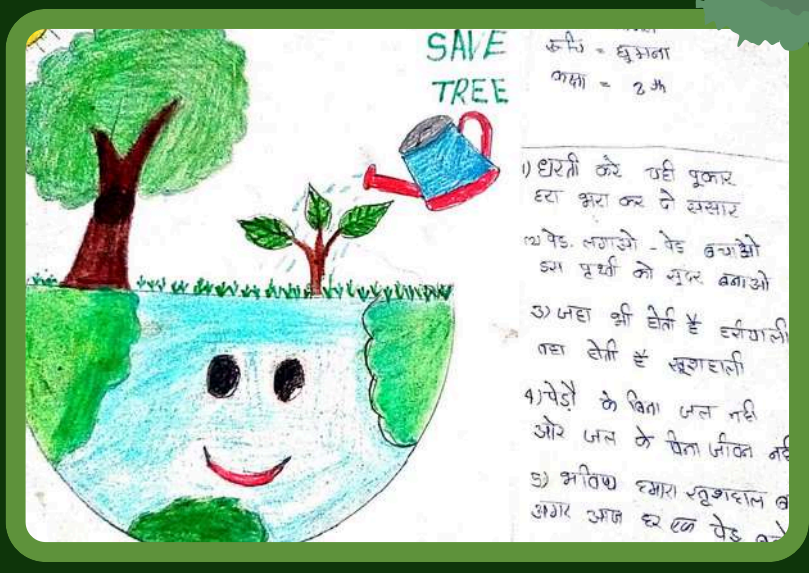 SAVE
TREE
रुचि = घुमना
कक्षा = 8 th
1) धरती करे यही पूकार
हरा भरा कर दो संसार
2) पेड़ लगाओ - पेड बचाओ
इस पृथ्वी को सुंदर बनाओ
3) जहा भी होती है हरीयाली
वहा होती है खूशहाली
4) पेड़ो के बिना जल नही
और जल के बिना जीवन नही
5) भविष्य हमारा खूशहाल
अगर आज हर एक पेड